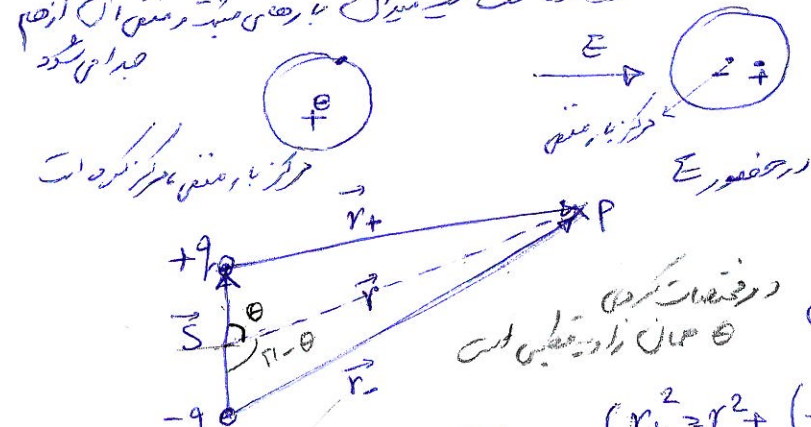 میدان بارهای مثبت و منفی آن از هم
جدا می‌شود
E
⊖
+
- +
مرکز بار منفی
مرکز بار منفی، مرکز کره است
در حضور E
r₊
P
+q
θ
r
S
π-θ
در مختصات کروی
θ همان زاویه قطبی است
r₋
-q
(r₊² = r² + (